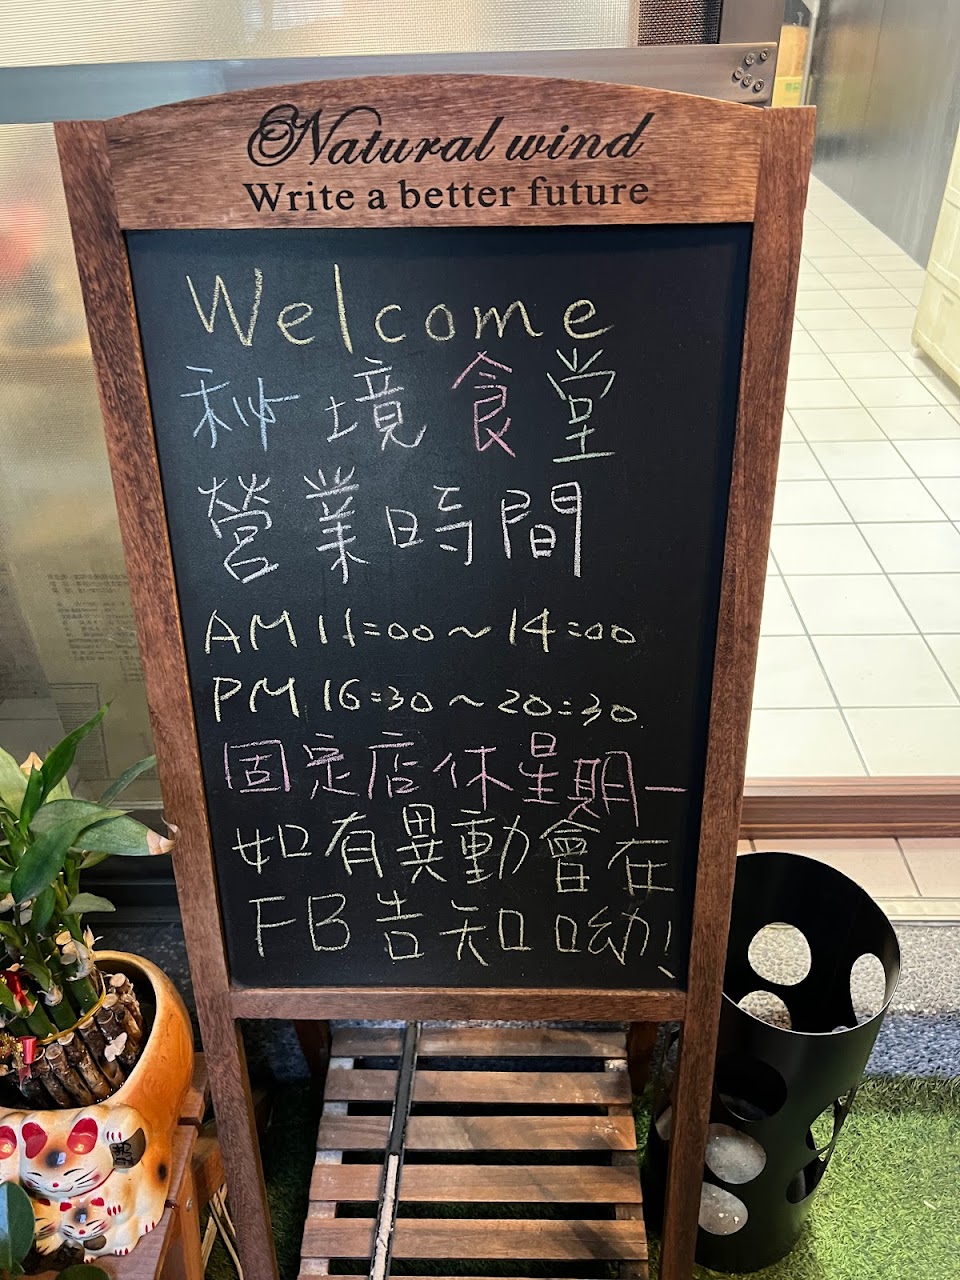 Natural wind
Write a better future
Welcome
秘境食堂
營業時間
AM 11:00~14:00
PM 16:30~20:30
固定店休星期一
如有異動會在
FB告知呦!